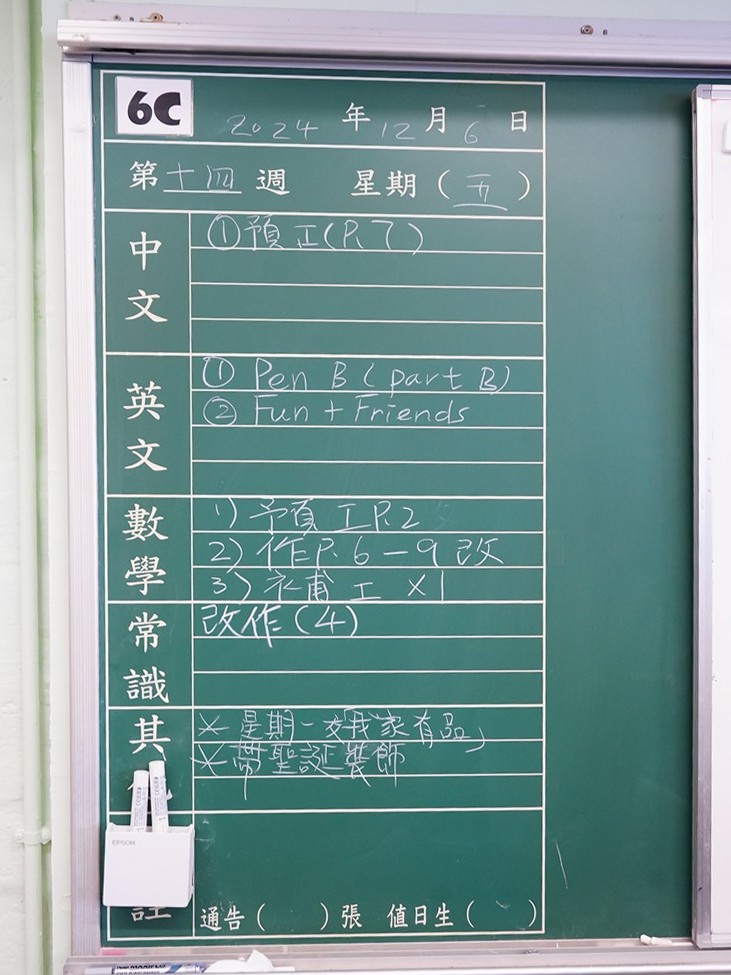 6C
2024 年 12 月 6 日
第 十四 週 星期 ( 五 )
中文
① 預工(P.7)
英文
① Pen B (part B)
② Fun + Friends
數學
1) 預工P.2
2) 作P.6-9改
3) 補工 ×1
常識
改作(4)
其
* 星期一交「我家有品」
* 帶聖誕裝飾
EPSON
註
通告 ( ) 張 值日生 ( )